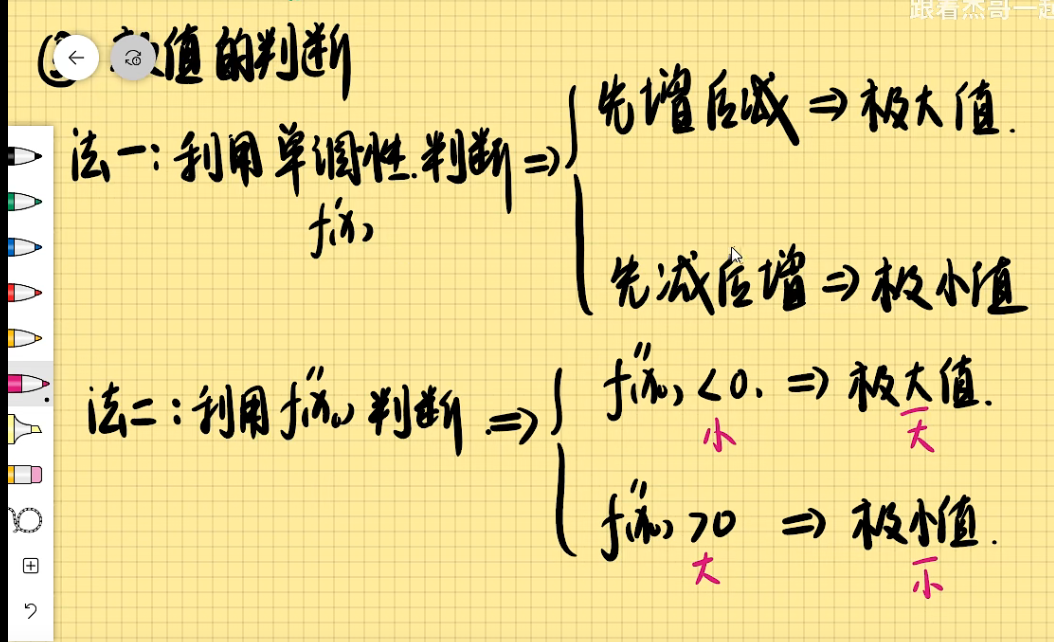 跟着杰哥一起
值的判断
法一:利用单调性.判断 ⇒
先增后减 ⇒ 极大值.
f'(x)
先减后增 ⇒ 极小值
法二:利用f''(x₀)判断 ⇒
f''(x₀)<0. ⇒ 极大值.
小 大
f''(x₀)>0 ⇒ 极小值.
大 小